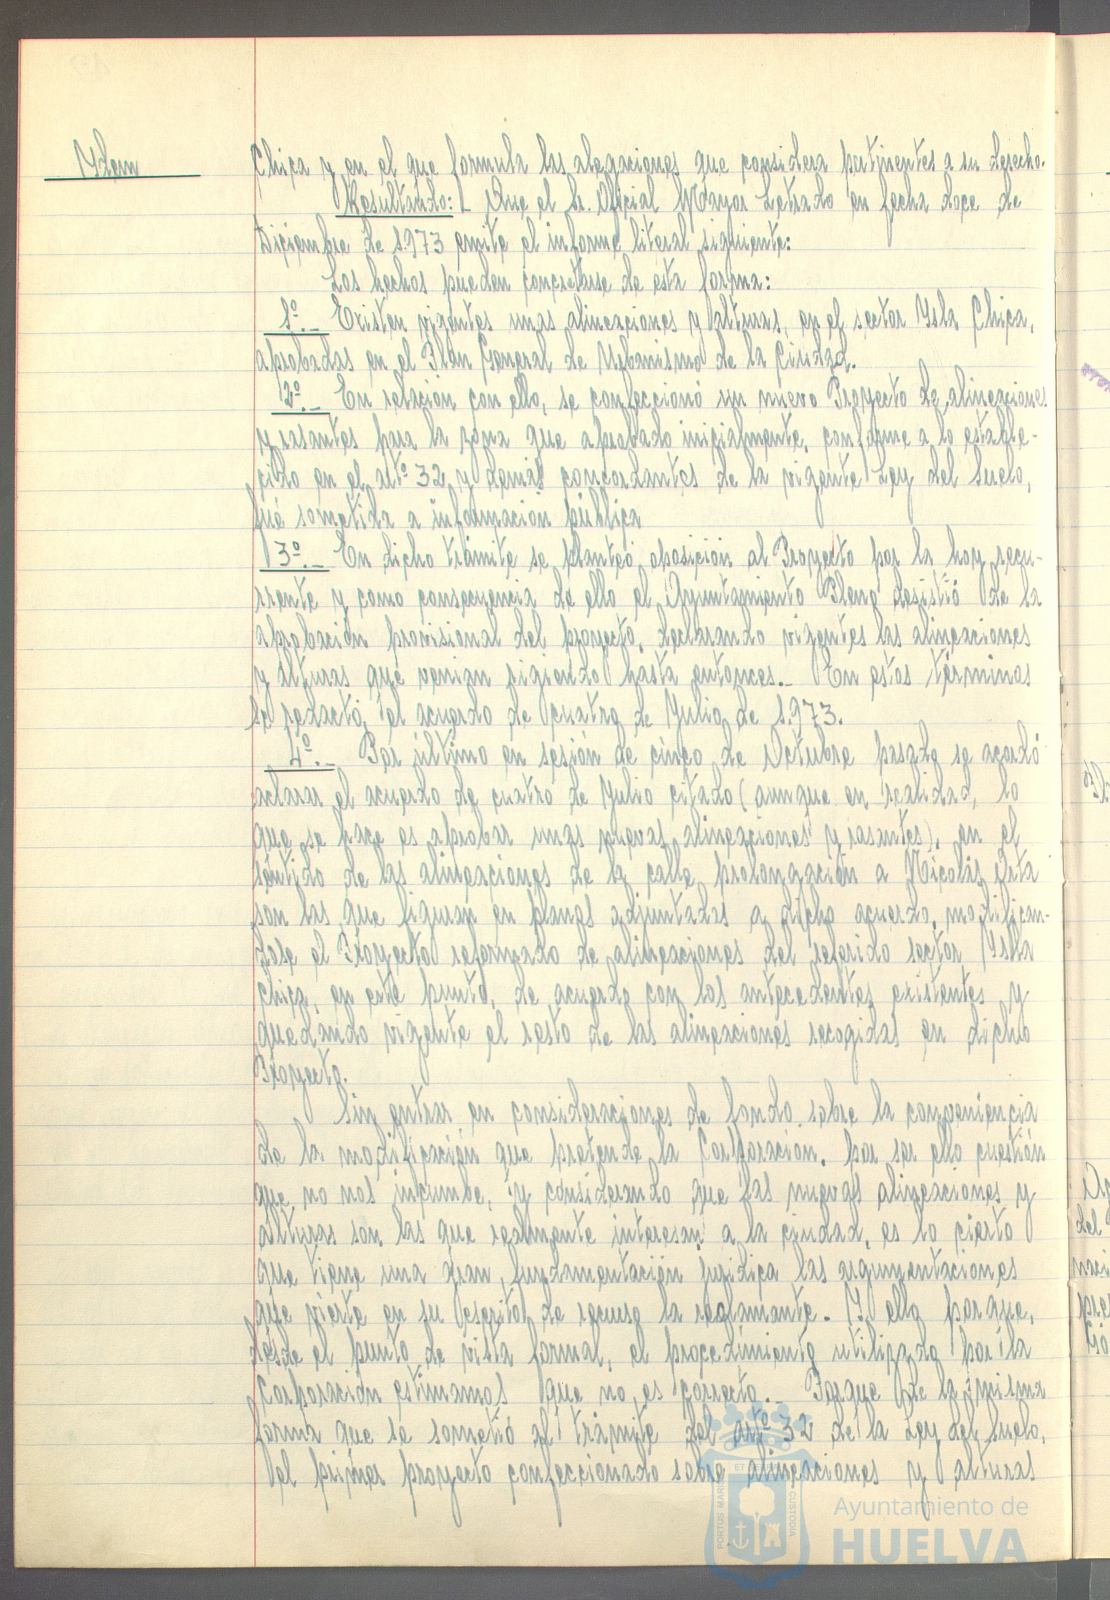 Ydem
Chica y en el que formula las alegaciones que considera pertinentes a su derecho.
Resultando: Que el Sr. Oficial Mayor Letrado en fecha doce de
Diciembre de 1.973 emite el informe literal siguiente:
Los hechos pueden concretarse de esta forma:
1º.- Existen vigentes unas alineaciones y alturas, en el sector Ysla Chica,
aprobadas en el Plan General de Urbanismo de la Ciudad.
2º.- En relación con ello, se confeccionó un nuevo Proyecto de alineaciones
y rasantes para la zona que aprobado inicialmente, conforme a lo estable-
cido en el artº 32 y demás concordantes de la vigente Ley del Suelo,
fué sometida a información pública
3º.- En dicho trámite se planteó oposición al Proyecto por la hoy recu-
rrente y como consecuencia de ello el Ayuntamiento Pleno desistió de la
aprobación provisional del proyecto, declarando vigentes las alineaciones
y alturas que venian rigiendo hasta entonces.- En estos términos
se redactó, el acuerdo de cuatro de Julio de 1.973.
4º.- Por último en sesión de cinco de Octubre pasado se acordó
aclarar el acuerdo de cuatro de Julio citado (aunque en realidad, lo
que se hace es aprobar unas nuevas alineaciones y rasantes), en el
sentido de las alineaciones de la calle prolongación a Nicolás Orta
son las que figuran en planos adjuntadas a dicho acuerdo, modifican-
dose el Proyecto reformado de alineaciones del referido sector Ysla
Chica, en este punto, de acuerdo con los antecedentes existentes y
quedando vigente el resto de las alineaciones recogidas en dicho
Proyecto.
Sin entrar en consideraciones de fondo sobre la conveniencia
de la modificación que pretende la Corporación, por ser ello cuestión
que no nos incumbe, y considerando que las nuevas alineaciones y
alturas son las que realmente interesan a la ciudad, es lo cierto
que tiene una gran fundamentación jurídica las argumentaciones
que vierte en su escrito de recurso la reclamante. Y ello porque,
desde el punto de vista formal, el procedimiento utilizado por la
Corporación estimamos que no es correcto.- Porque de la misma
forma que se sometió al trámite del artº 32 de la Ley del Suelo,
el primer proyecto confeccionado sobre alineaciones y alturas
PORTUS MARIS ET CUSTODIA
Ayuntamiento de
HUELVA